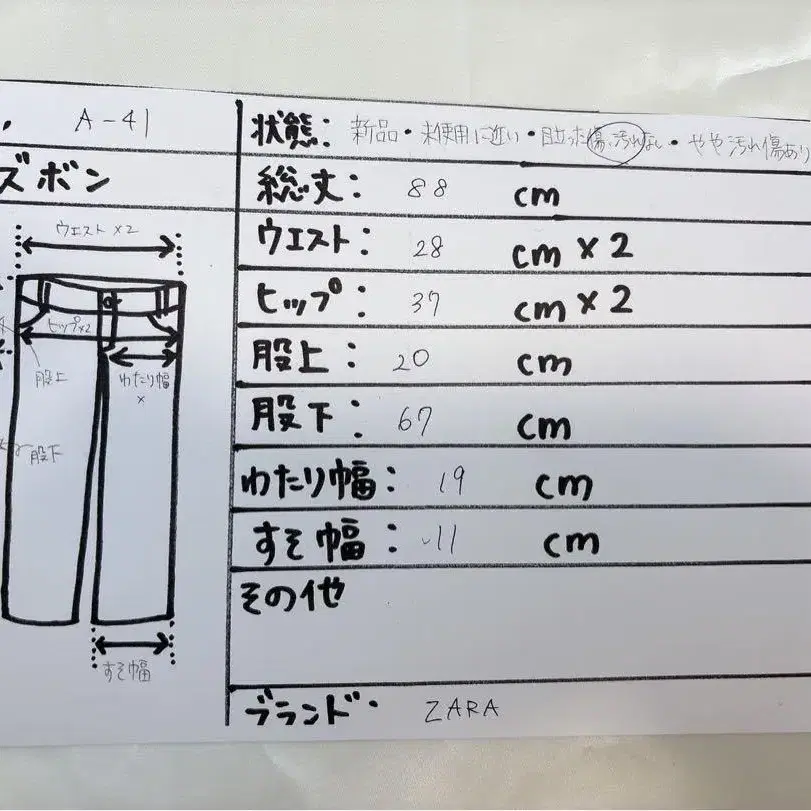 A-41
ズボン
ウエスト×2
ヒップ×2
股上
わたり幅
×
股下
すそ幅
状態: 新品・未使用に近い・目立った傷、汚れなし・やや汚れ傷あり
総丈: 88 cm
ウエスト: 28 cm×2
ヒップ: 37 cm×2
股上: 20 cm
股下: 67 cm
わたり幅: 19 cm
すそ幅: 11 cm
その他
ブランド・ ZARA